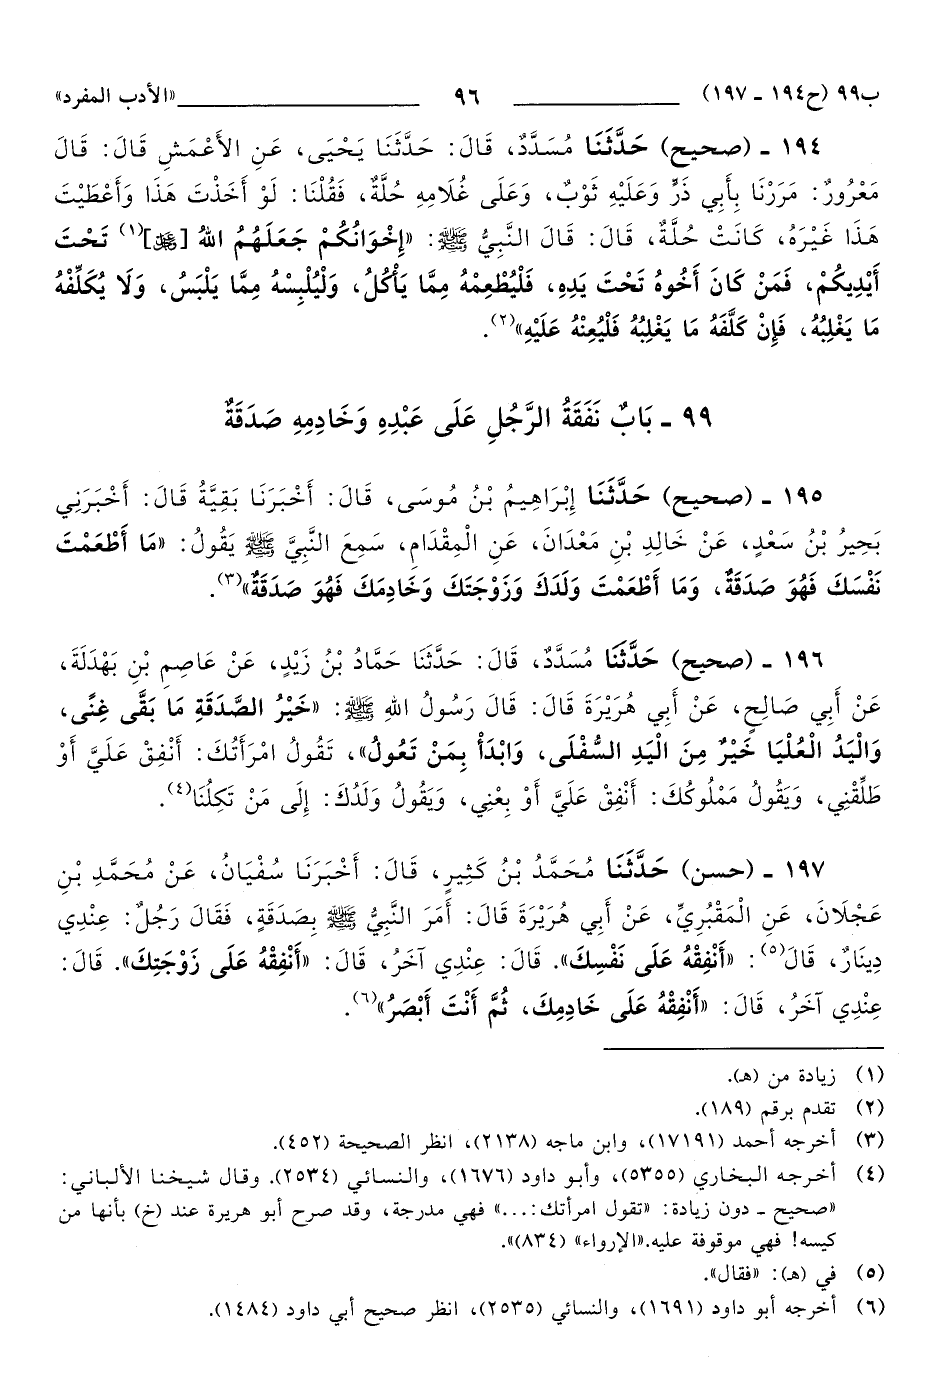 ب٩٩ (ح١٩٤ ـ ١٩٧) ٩٦ «الأدب المفرد»
١٩٤ ـ (صحيح) حَدَّثَنَا مُسَدَّدٌ، قَالَ: حَدَّثَنَا يَحْيَى، عَنِ الأَعْمَشِ قَالَ: قَالَ
مَعْرُورٌ: مَرَرْنَا بِأَبِي ذَرٍّ وَعَلَيْهِ ثَوْبٌ، وَعَلَى غُلَامِهِ حُلَّةٌ، فَقُلْنَا: لَوْ أَخَذْتَ هَذَا وَأَعْطَيْتَ
هَذَا غَيْرَهُ، كَانَتْ حُلَّةٌ، قَالَ: قَالَ النَّبِيُّ ﷺ: «إِخْوَانُكُمْ جَعَلَهُمُ اللهُ [ﷻ](١) تَحْتَ
أَيْدِيكُمْ، فَمَنْ كَانَ أَخُوهُ تَحْتَ يَدِهِ، فَلْيُطْعِمْهُ مِمَّا يَأْكُلُ، وَلْيُلْبِسْهُ مِمَّا يَلْبَسُ، وَلَا يُكَلِّفْهُ
مَا يَغْلِبُهُ، فَإِنْ كَلَّفَهُ مَا يَغْلِبُهُ فَلْيُعِنْهُ عَلَيْهِ»(٢).
٩٩ ـ بَابٌ نَفَقَةُ الرَّجُلِ عَلَى عَبْدِهِ وَخَادِمِهِ صَدَقَةٌ
١٩٥ ـ (صحيح) حَدَّثَنَا إِبْرَاهِيمُ بْنُ مُوسَى، قَالَ: أَخْبَرَنَا بَقِيَّةُ قَالَ: أَخْبَرَنِي
بَحِيرُ بْنُ سَعْدٍ، عَنْ خَالِدِ بْنِ مَعْدَانَ، عَنِ الْمِقْدَامِ، سَمِعَ النَّبِيَّ ﷺ يَقُولُ: «مَا أَطْعَمْتَ
نَفْسَكَ فَهُوَ صَدَقَةٌ، وَمَا أَطْعَمْتَ وَلَدَكَ وَزَوْجَتَكَ وَخَادِمَكَ فَهُوَ صَدَقَةٌ»(٣).
١٩٦ ـ (صحيح) حَدَّثَنَا مُسَدَّدٌ، قَالَ: حَدَّثَنَا حَمَّادُ بْنُ زَيْدٍ، عَنْ عَاصِمِ بْنِ بَهْدَلَةَ،
عَنْ أَبِي صَالِحٍ، عَنْ أَبِي هُرَيْرَةَ قَالَ: قَالَ رَسُولُ اللهِ ﷺ: «خَيْرُ الصَّدَقَةِ مَا بَقَّى غِنًى،
وَالْيَدُ الْعُلْيَا خَيْرٌ مِنَ الْيَدِ السُّفْلَى، وَابْدَأْ بِمَنْ تَعُولُ»، تَقُولُ امْرَأَتُكَ: أَنْفِقْ عَلَيَّ أَوْ
طَلِّقْنِي، وَيَقُولُ مَمْلُوكُكَ: أَنْفِقْ عَلَيَّ أَوْ بِعْنِي، وَيَقُولُ وَلَدُكَ: إِلَى مَنْ تَكِلُنَا(٤).
١٩٧ ـ (حسن) حَدَّثَنَا مُحَمَّدُ بْنُ كَثِيرٍ، قَالَ: أَخْبَرَنَا سُفْيَانُ، عَنْ مُحَمَّدِ بْنِ
عَجْلَانَ، عَنِ الْمَقْبُرِيِّ، عَنْ أَبِي هُرَيْرَةَ قَالَ: أَمَرَ النَّبِيُّ ﷺ بِصَدَقَةٍ، فَقَالَ رَجُلٌ: عِنْدِي
دِينَارٌ، قَالَ(٥): «أَنْفِقْهُ عَلَى نَفْسِكَ». قَالَ: عِنْدِي آخَرُ، قَالَ: «أَنْفِقْهُ عَلَى زَوْجَتِكَ». قَالَ:
عِنْدِي آخَرُ، قَالَ: «أَنْفِقْهُ عَلَى خَادِمِكَ، ثُمَّ أَنْتَ أَبْصَرُ»(٦).
(١) زيادة من (هـ).
(٢) تقدم برقم (١٨٩).
(٣) أخرجه أحمد (١٧١٩١)، وابن ماجه (٢١٣٨)، انظر الصحيحة (٤٥٢).
(٤) أخرجه البخاري (٥٣٥٥)، وأبو داود (١٦٧٦)، والنسائي (٢٥٣٤). وقال شيخنا الألباني:
«صحيح ـ دون زيادة: «تقول امرأتك:...» فهي مدرجة، وقد صرح أبو هريرة عند (خ) بأنها من
كيسه! فهي موقوفة عليه.«الإرواء» (٨٣٤)».
(٥) في (هـ): «فقال».
(٦) أخرجه أبو داود (١٦٩١)، والنسائي (٢٥٣٥)، انظر صحيح أبي داود (١٤٨٤).